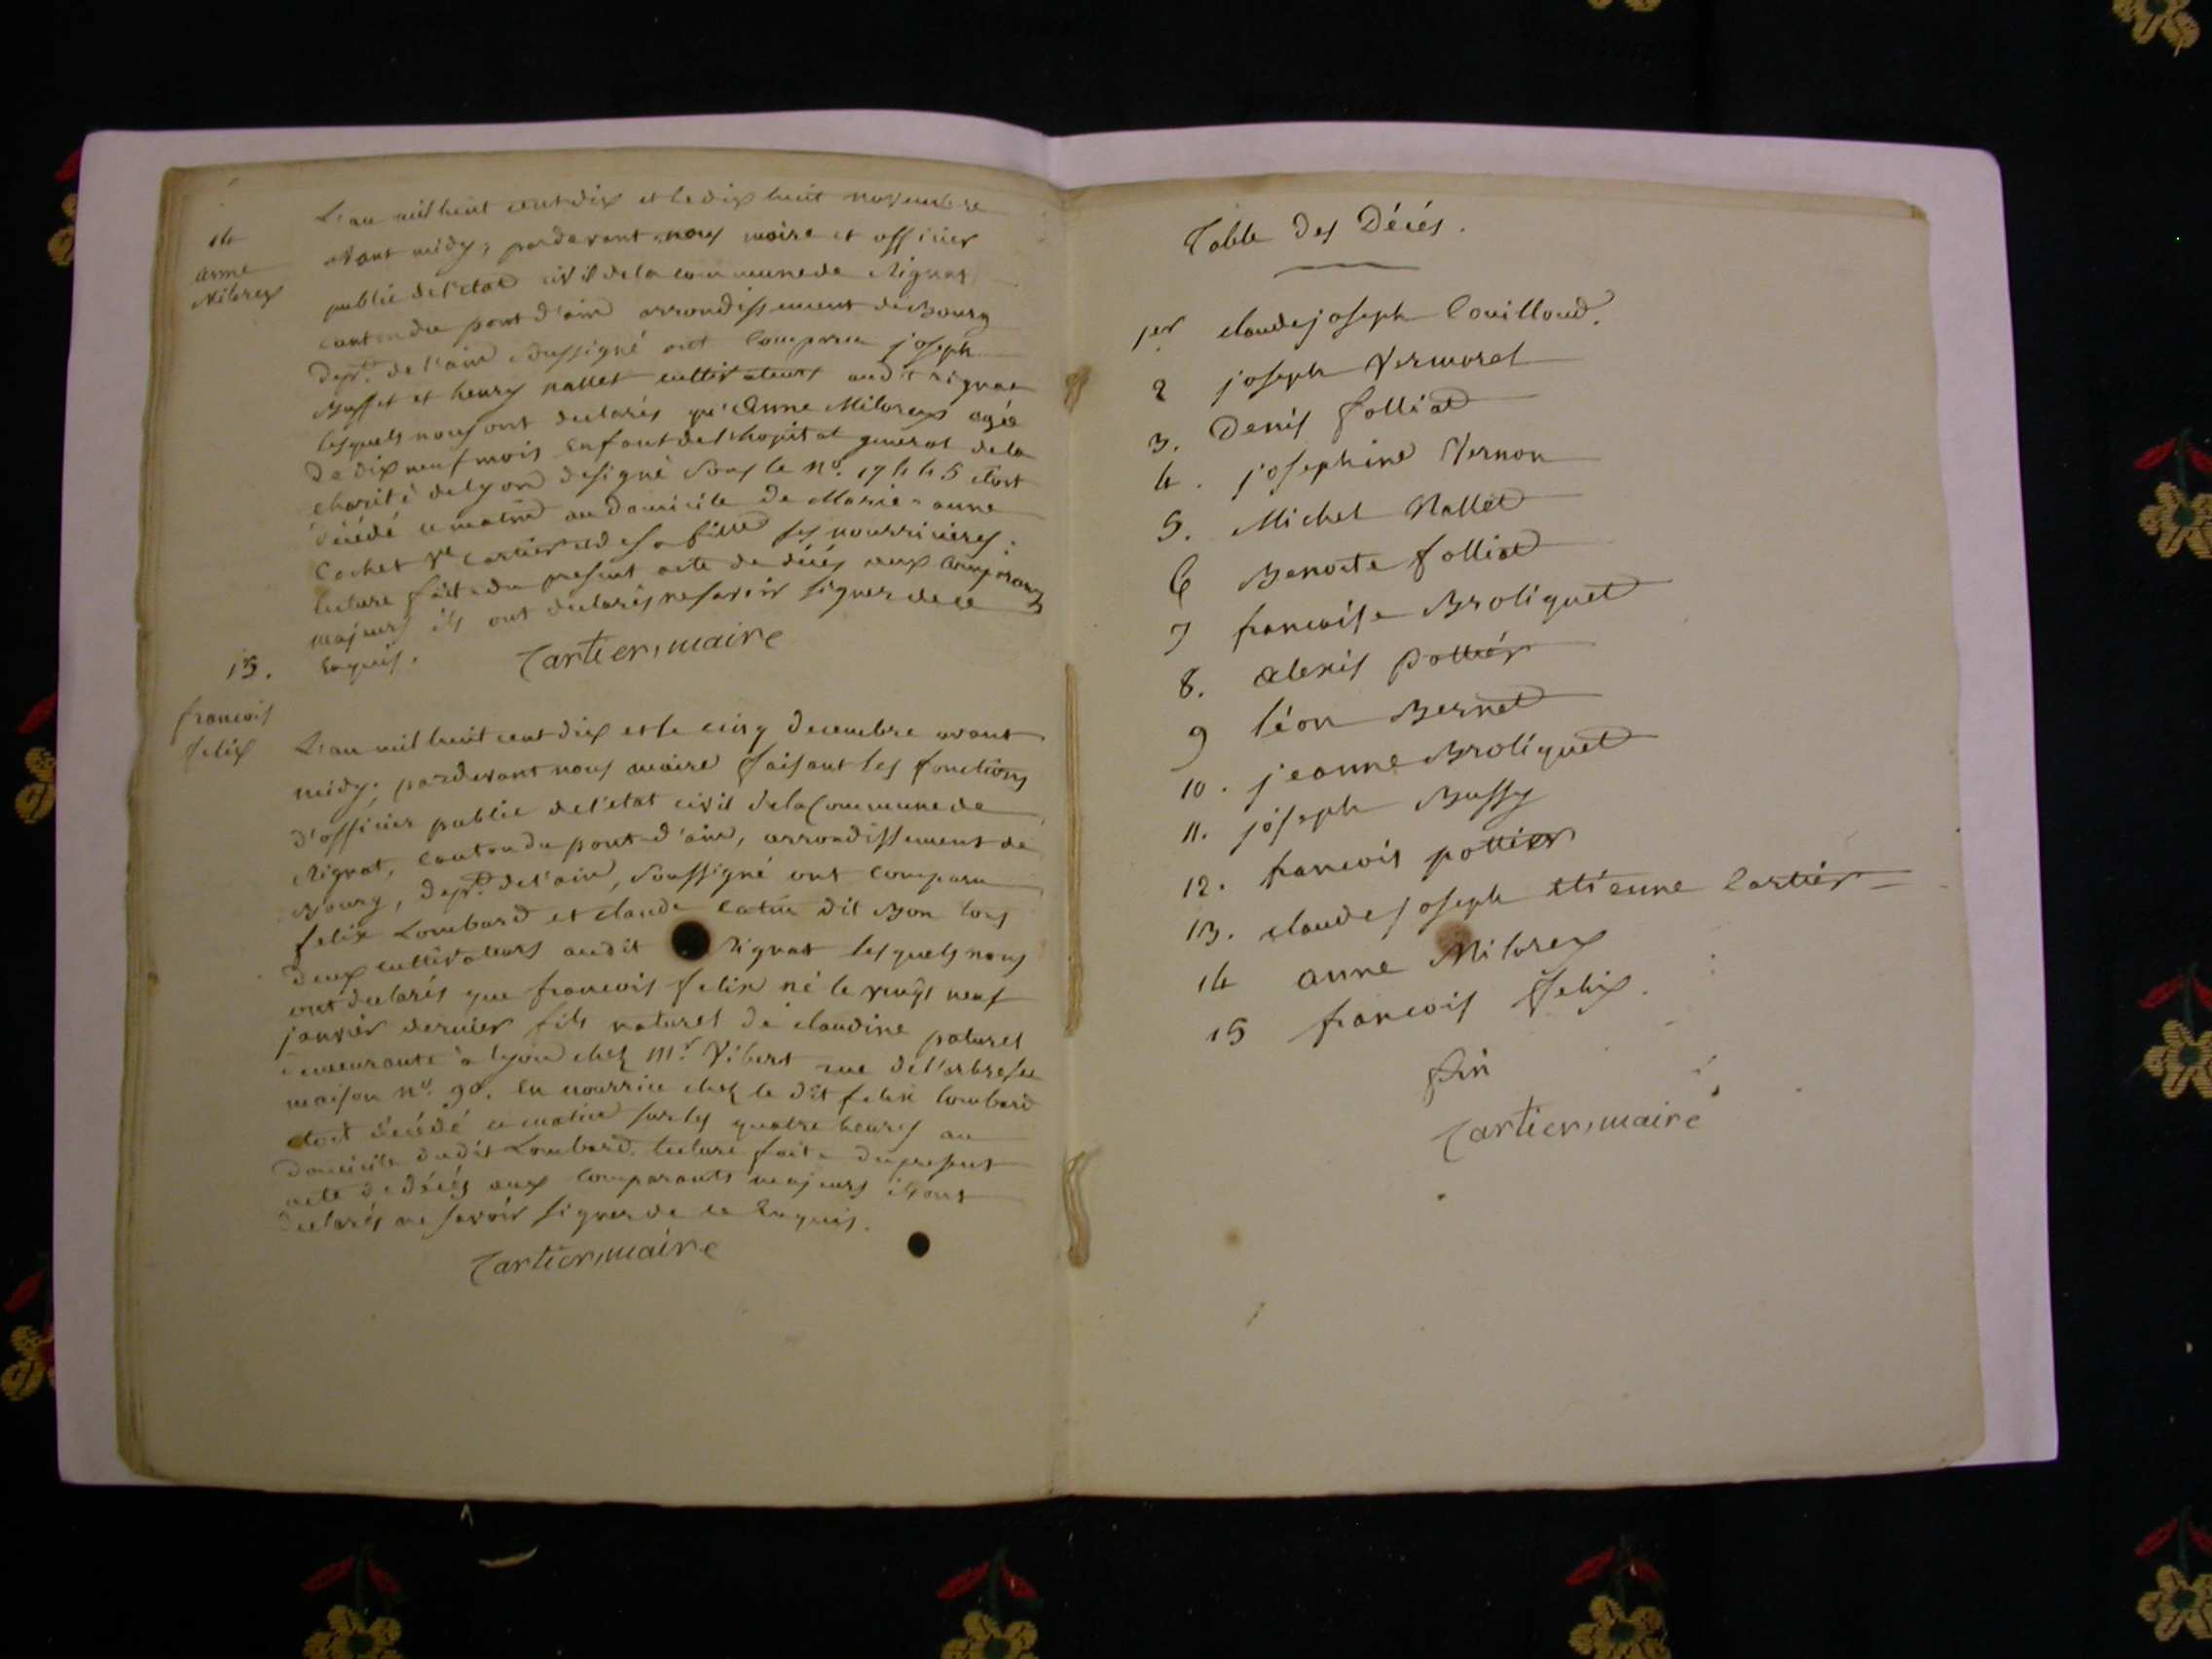 14
anne
Milorey
L'an mil huit cent dix et le dix huit novembre
avant midy; pardevant nous maire et officier
public de l'etat civil de la commune de Rignat
canton du pont d'ain arrondissement de Bourg
dept. de l'ain soussigné ont comparu joseph
Buffet et henry nallet cultivateurs audit rignat
lesquels nous ont declarés qu'Anne Milorey agée
de dix neuf mois enfant de l'hopital general de la
charité de lyon designé sous le no. 17445 etoit
décédé ce matin au domicile de Marie-anne
Cochet ve. cartier et de sa fille ses nourricieres;
lecture faite du present acte de décés aux comparants
majeurs ils ont declarés ne savoir signer de ce
enquis.
Cartier, maire
15.
francois
felix
L'an mil huit cent dix et le cinq decembre avant
midy; pardevant nous maire faisant les fonctions
d'officier public de l'etat civil de la Commune de
Rignat, canton du pont-d'ain, arrondissement de
Bourg, dept. de l'ain, soussigné ont comparu
felix Lombard et claude dit Bon tous
deux cultivateurs audit Rignat lesquels nous
ont declarés que francois felix né le vingt neuf
janvier dernier fils naturel de claudine paturel
demeurante à lyon chez mr. Vibert rue de l'arbre sec
maison no. 90. en nourrice chez le dit felix lombard
etoit décédé ce matin sur les quatre heures au
domicile dudit Lombard. lecture faite du present
acte de décés aux comparants majeurs ils ont
declarés ne savoir signer de ce enquis.
Cartier, maire
Table des Décés.
1er claude joseph Couilloud.
2 joseph Vermorel
3. Denis folliat
4. josephine Vernon
5. Michel Nallet
6 Benoite folliat
7 francoise Broliquet
8. alexis pottier
9 léon Bernet
10. jeanne Broliquet
11. joseph Bussy
12. francois pottier
13. claude joseph etienne Cartier
14 anne Milorey
15 francois felix.
fin
Cartier, maire